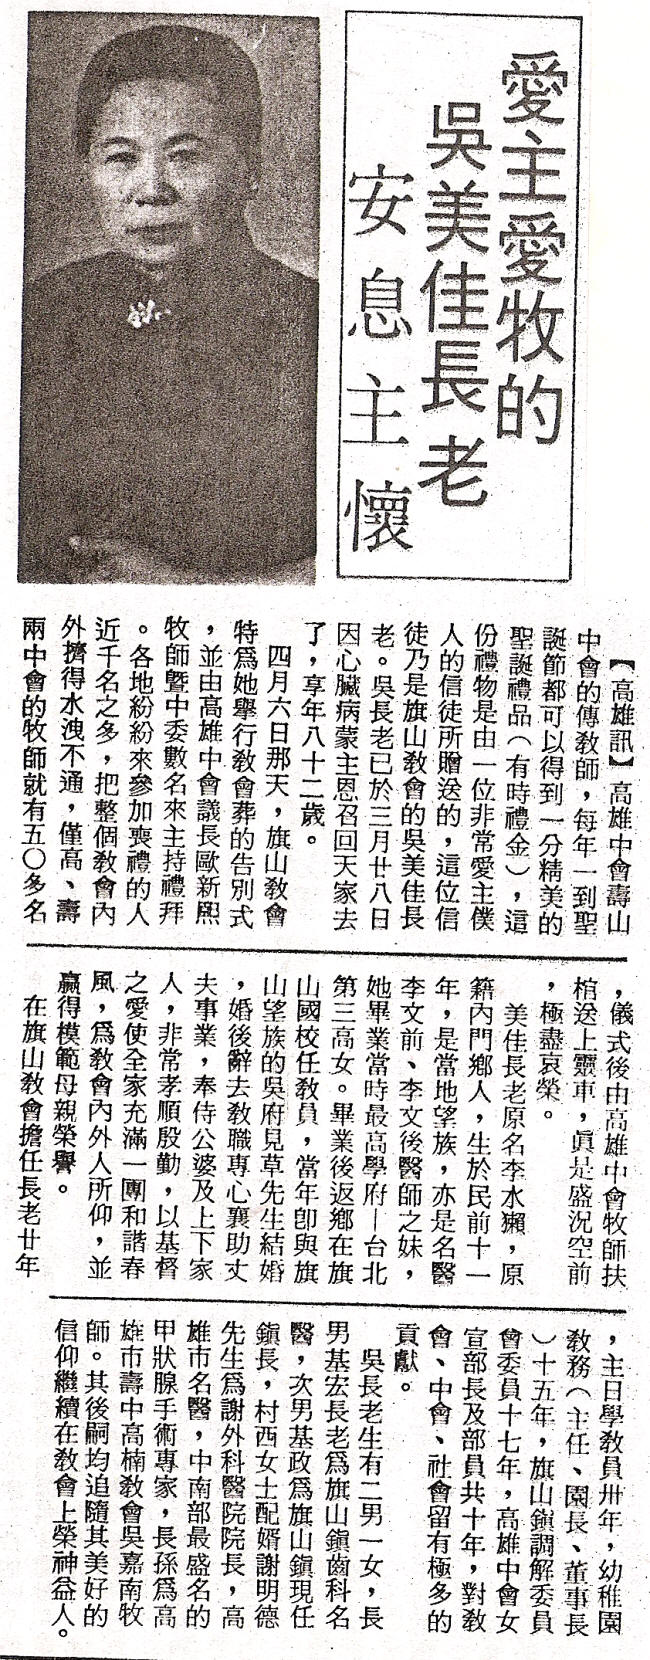 愛主愛牧的
吳美佳長老
安息主懷
【高雄訊】高雄中會壽山
中會的傳教師，每年一到聖
誕節都可以得到一分精美的
聖誕禮品（有時禮金），這
份禮物是由一位非常愛主僕
人的信徒所贈送的，這位信
徒乃是旗山教會的吳美佳長
老。吳長老已於三月廿八日
因心臟病蒙主恩召回天家去
了，享年八十二歲。
四月六日那天，旗山教會
特為她舉行教會葬的告別式
，並由高雄中會議長歐新熙
牧師暨中委數名來主持禮拜
。各地紛紛來參加喪禮的人
近千名之多，把整個教會內
外擠得水洩不通，僅高、壽
兩中會的牧師就有五〇多名
，儀式後由高雄中會牧師扶
棺送上靈車，眞是盛況空前
，極盡哀榮。
美佳長老原名李水獺，原
籍內門鄉人，生於民前十一
年，是當地望族，亦是名醫
李文前、李文後醫師之妹，
她畢業當時最高學府—台北
第三高女。畢業後返鄉在旗
山國校任教員，當年卽與旗
山望族的吳府見草先生結婚
，婚後辭去教職專心襄助丈
夫事業，奉侍公婆及上下家
人，非常孝順殷勤，以基督
之愛使全家充滿一團和諧春
風，為教會內外人所仰，並
贏得模範母親榮譽。
在旗山教會擔任長老廿年
，主日學教員卅年，幼稚園
教務（主任、園長、董事長
）十五年，旗山鎮調解委員
會委員十七年，高雄中會女
宣部長及部員共十年，對教
會、中會、社會留有極多的
貢獻。
吳長老生有二男一女，長
男基宏長老為旗山鎮齒科名
醫，次男基政為旗山鎮現任
鎮長，村西女士配婿謝明德
先生為謝外科醫院院長，高
雄市名醫，中南部最盛名的
甲狀腺手術專家，長孫為高
雄市壽中高楠教會吳嘉南牧
師。其後嗣均追隨其美好的
信仰繼續在教會上榮神益人。